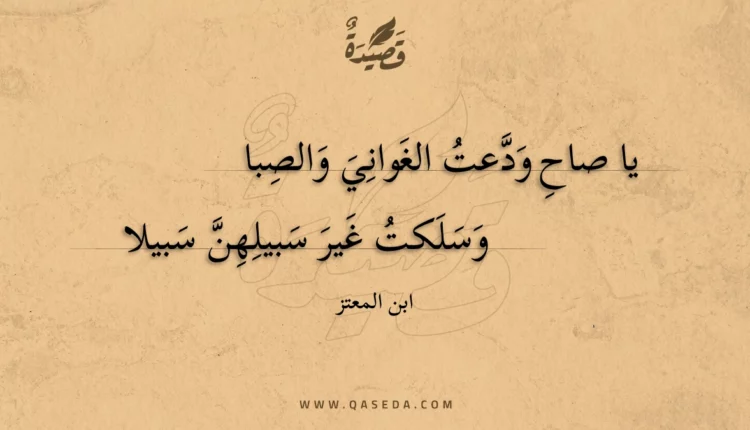 قَصِيْدَةٌ
يا صاحِ وَدَّعتُ الغَوانِيَ وَالصِبا
وَسَلَكتُ غَيرَ سَبيلِهِنَّ سَبيلا
ابن المعتز
WWW.QASEDA.COM